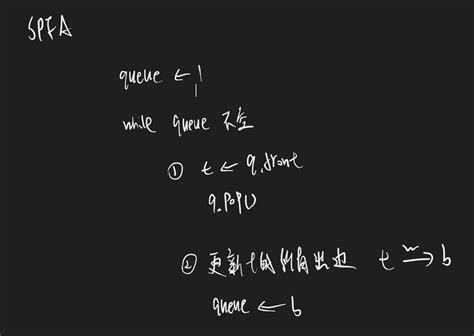 SPFA
queue ← 1
while queue 不空
① t ← q.front
q.pop()
② 更新t的所有出边 t -w-> b
queue ← b